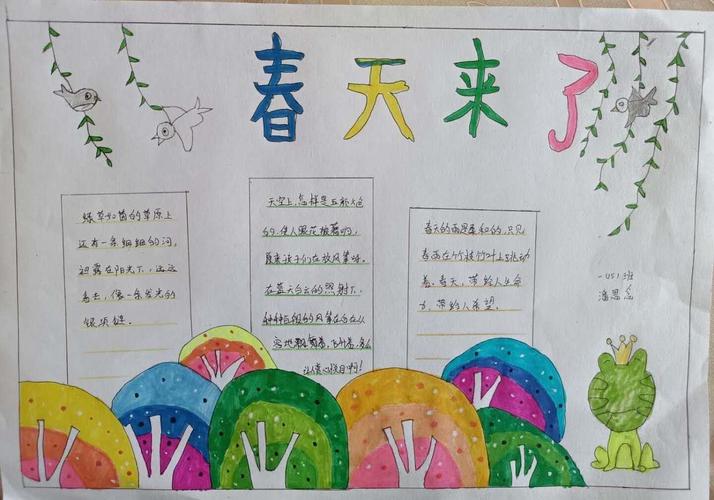 春天来了
绿草如茵的草原上
还有一条细细的河,
袒露在阳光下,远远
看去,像一条发光的
银项链。
天空上,怎样是五彩六色
的,使人眼花
孩子们在放风筝呀。
在蓝天白云的照射下,
的风筝在
啊!
春天的雨是柔和的,只见
春雨在竹枝竹叶上跳动
着。春天,带给人生命
力,带给人希望。
班
潘思